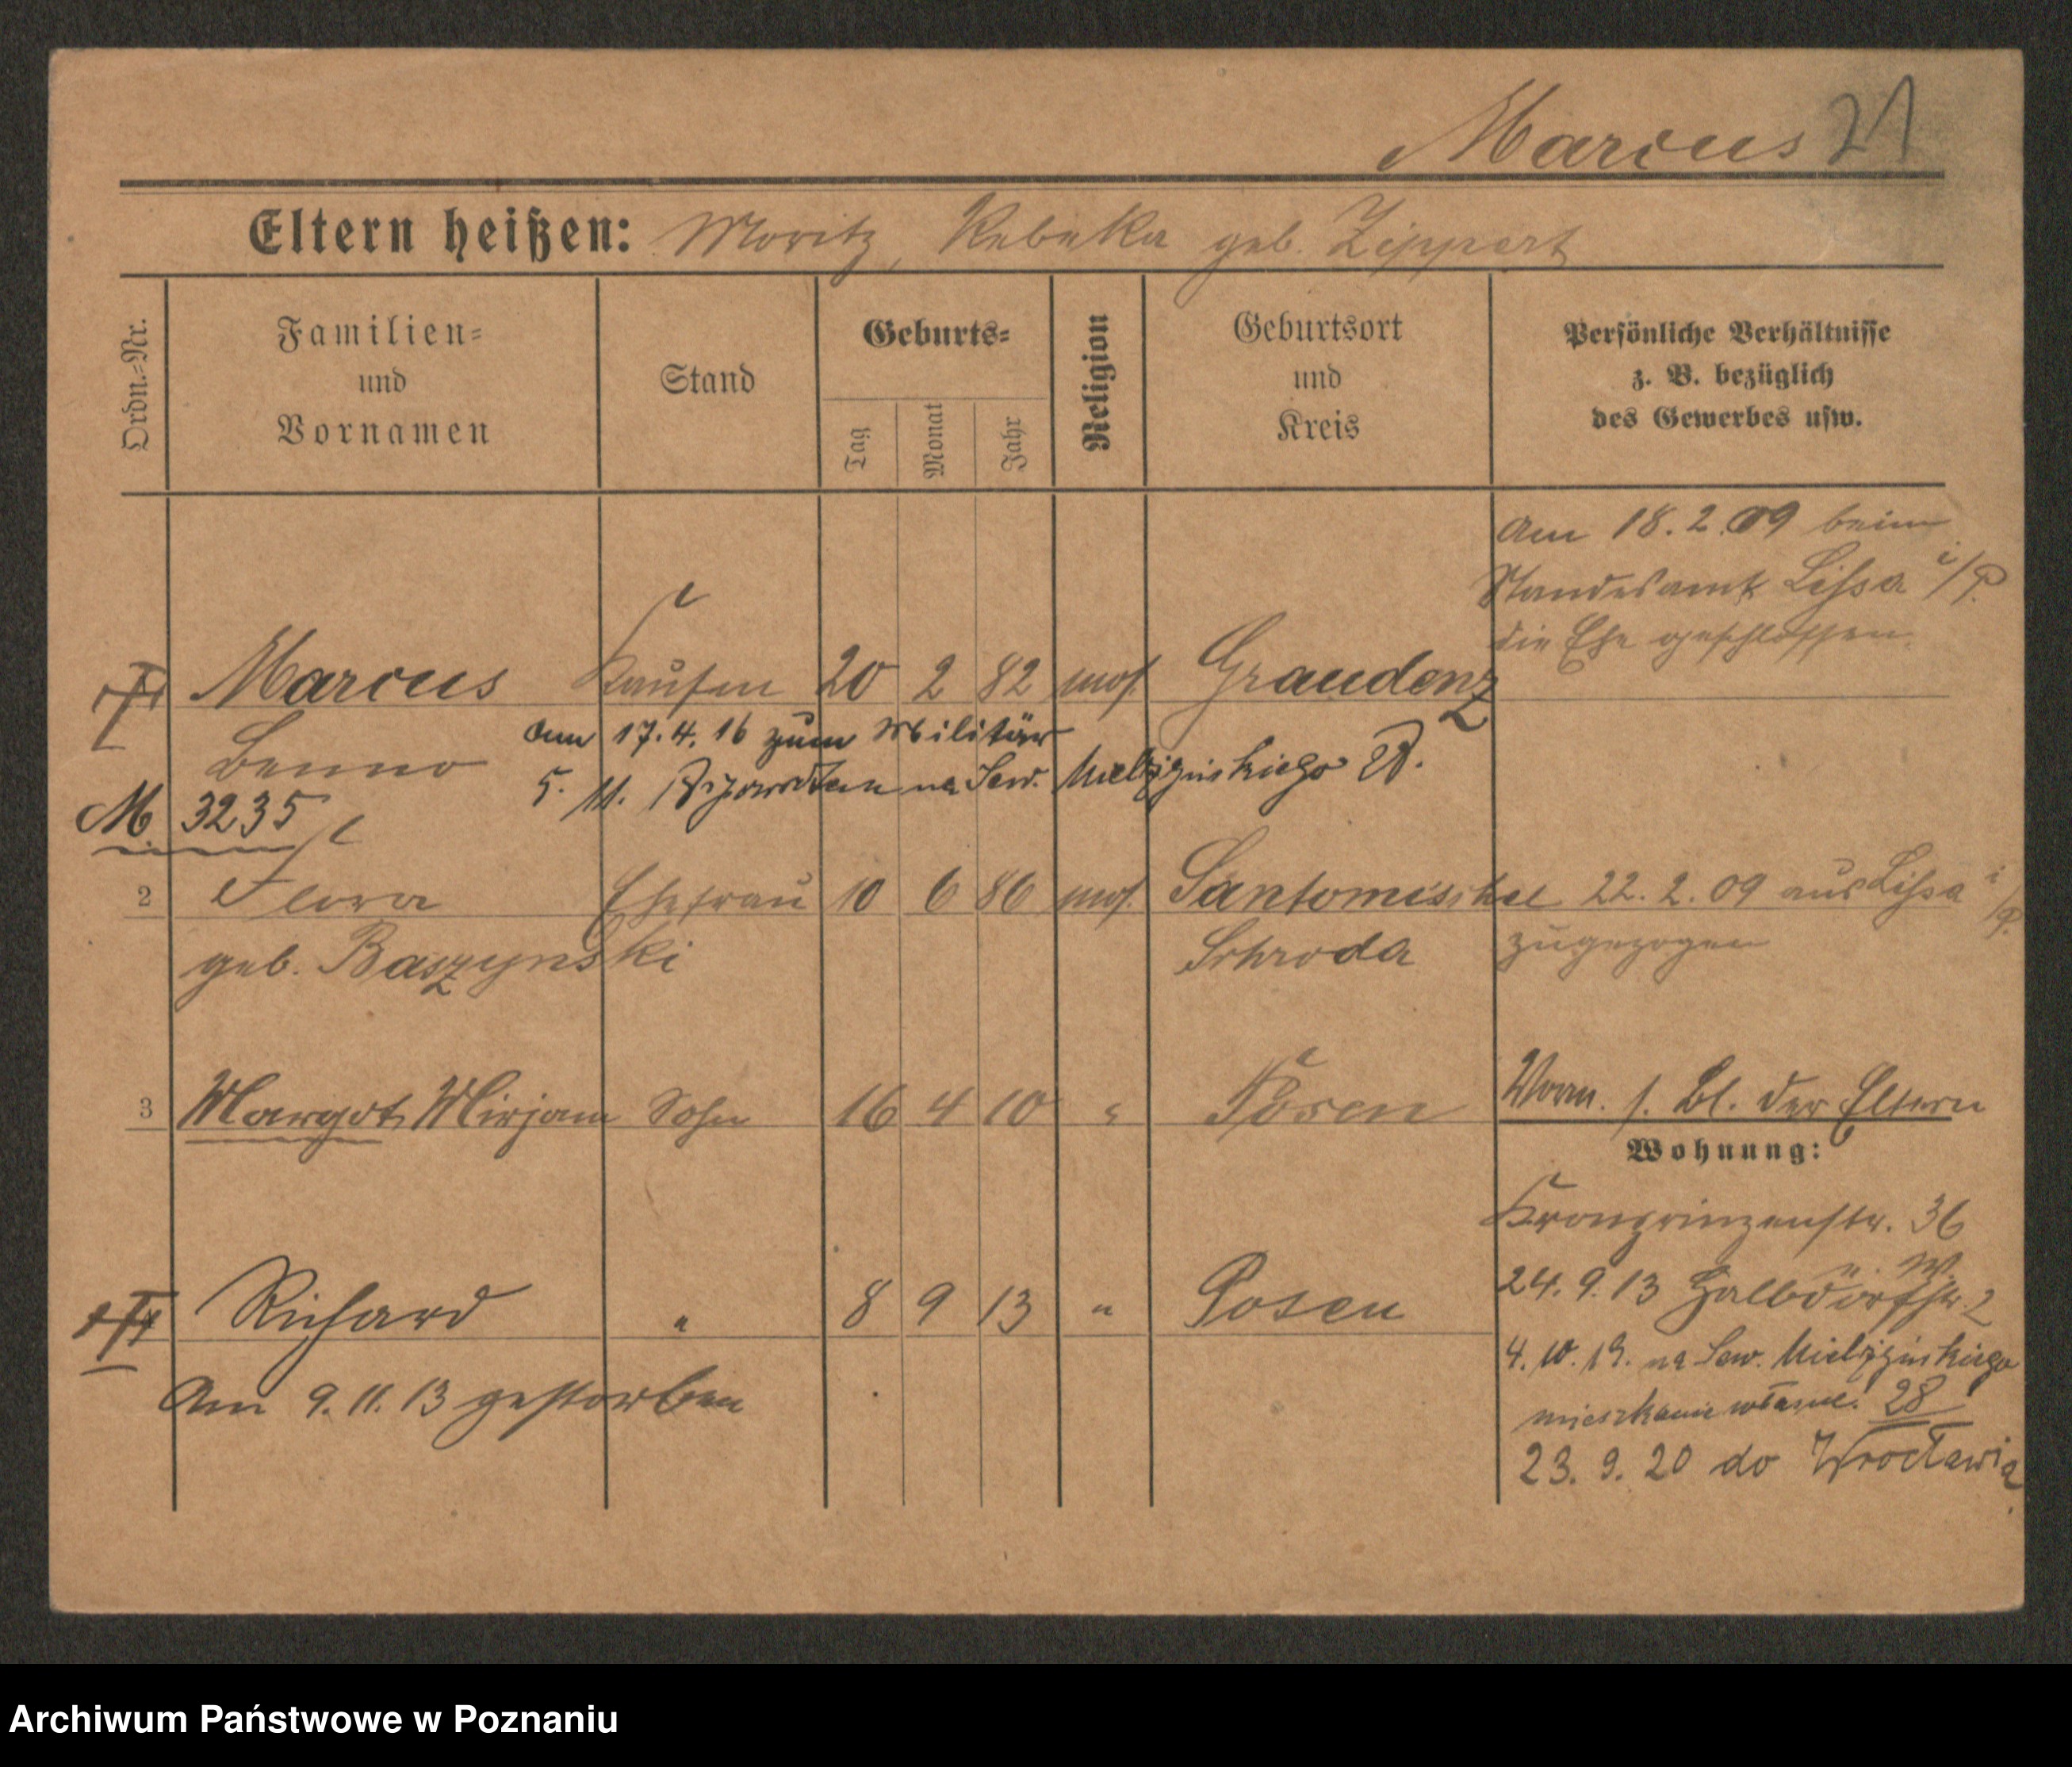 Marcus 21
Eltern heißen: Moritz, Rebeka geb. Zippert
Ordn.-Nr.
Familien-
und
Vornamen
Stand
Geburts-
Tag
Monat
Jahr
Religion
Geburtsort
und
Kreis
Persönliche Verhältnisse
z. B. bezüglich
des Gewerbes usw.
Am 18.2.09 beim
Standesamt Lissa i/P.
die Ehe geschlossen.
Marcus Kaufm 20 2 82 mos. Graudenz
Benno
am 17.4.16 zum Militär
5. 11. na Sew. Mielżyńskiego
M 3235
2 Flora Ehefrau 10 6 86 mos. Santomischel 22.2.09 aus Lissa i/P.
geb. Baszynski Schroda zugezogen
3 Margot Mirjam Sohn 16 4 10 " Posen
Vorm. s. Bl. der Eltern
Wohnung:
Kronprinzenstr. 36
24.9.13 Halbdorfstr. 2
Richard " 8 9 13 " Posen
4.10.19. na Sew. Mielżyńskiego
mieszkanie własne. 28
Am 9.11.13 gestorben
23.9.20 do Wrocławia.
Archiwum Państwowe w Poznaniu